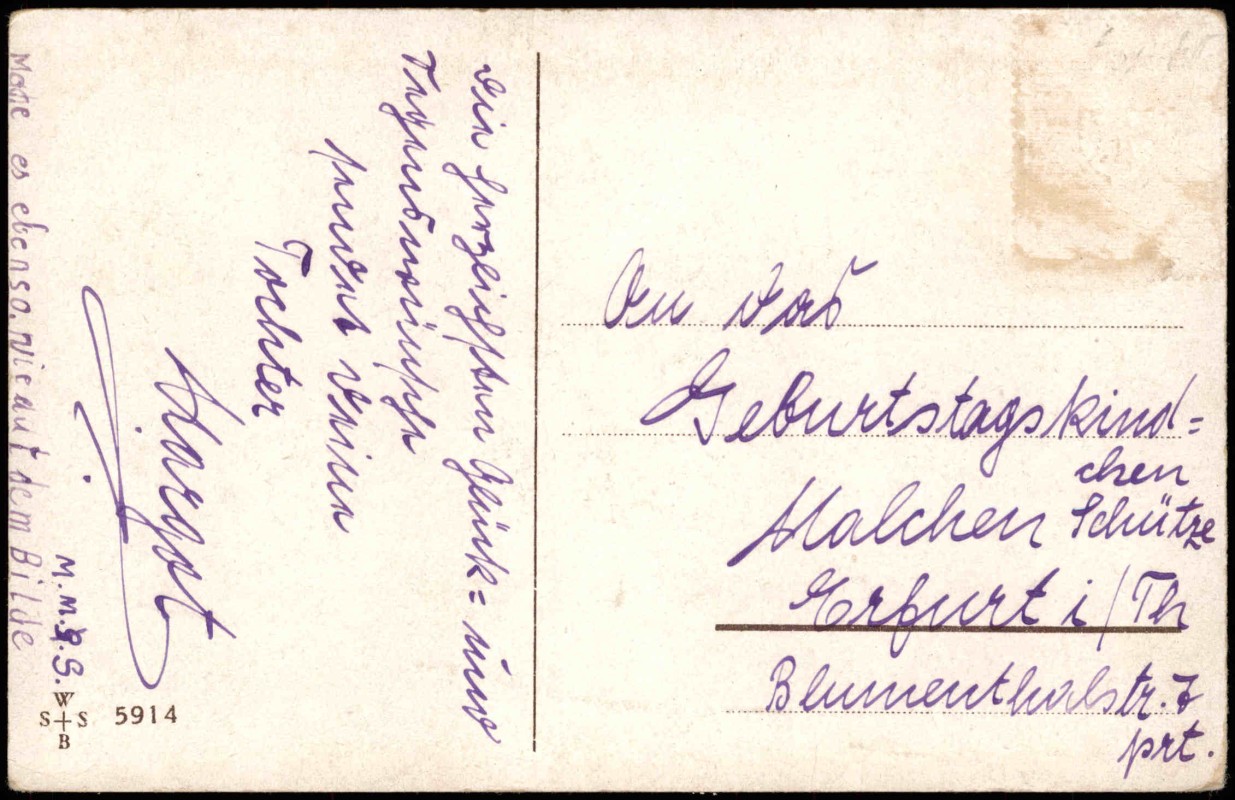 Die herzlichsten Glück= und
Segenswünsche
sendet Deine
Tochter
Margot
M. M. S.
Mache es ebenso, wie auf dem Bilde
An das
Geburtstagskind=
chen
Malchen Schütze
Erfurt i/Th
Blumenthalstr. 7
prt.
W
S S
B
5914